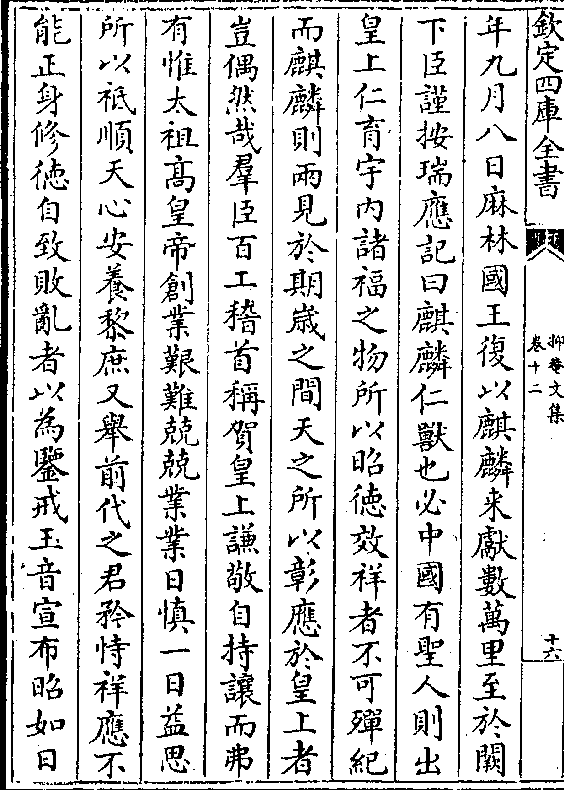 欽定四庫全書
抑菴文集
卷十二
十六
年九月八日麻林國王復以麒麟来獻數萬里至於闕
下臣謹按瑞應記曰麒麟仁獸也必中國有聖人則出
皇上仁育宇内諸福之物所以昭徳效祥者不可殫紀
而麒麟則兩見於期歳之間天之所以彰應於皇上者
豈偶然哉羣臣百工稽首稱賀皇上謙敬自持讓而弗
有惟太祖髙皇帝創業艱難兢兢業業日慎一日益思
所以祗順天心安養黎庶又舉前代之君矜恃祥應不
能正身修徳自致敗亂者以為鑒戒玉音宣布昭如日